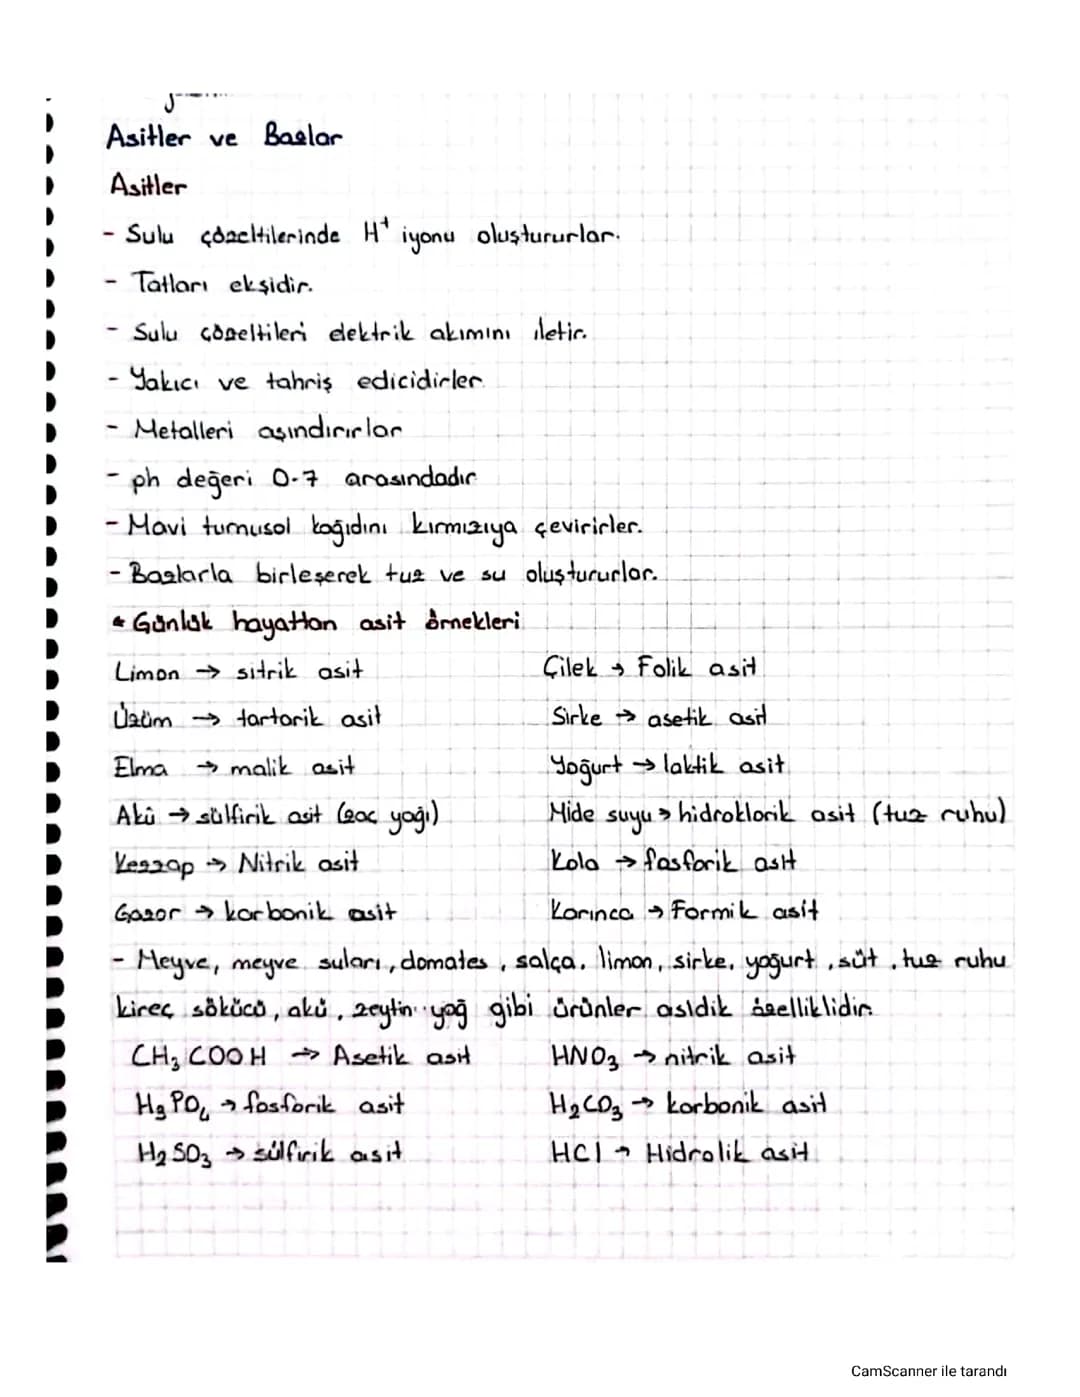 Asitler ve Bazlar
Asitler
- Sulu çözeltilerinde H⁺ iyonu oluştururlar.
- Tatları ekşidir.
- Sulu çözeltileri elektrik akımını iletir.
- Yakıcı ve tahriş edicidirler.
- Metalleri aşındırırlar
- ph değeri 0-7 arasındadır
- Mavi turnusol kağıdını kırmızıya çevirirler.
- Bazlarla birleşerek tuz ve su oluştururlar.
* Günlük hayattan asit örnekleri
Limon → sitrik asit Çilek → Folik asit
Üzüm → tartarik asit Sirke → asetik asit
Elma → malik asit Yoğurt → laktik asit
Akü → sülfirik asit (zaç yağı) Mide suyu → hidroklorik asit (tuz ruhu)
Kezzap → Nitrik asit Kola → fosforik asit
Gazoz → karbonik asit Karınca → Formik asit
- Meyve, meyve suları, domates, salça, limon, sirke, yoğurt, süt, tuz ruhu
kireç sökücü, akü, zeytin yağ gibi ürünler asidik özelliklidir.
CH₃COOH → Asetik asit HNO₃ → nitrik asit
H₃PO₄ → fosforik asit H₂CO₃ → karbonik asit
H₂SO₃ → sülfirik asit HCl → Hidrolik asit
CamScanner ile tarandı